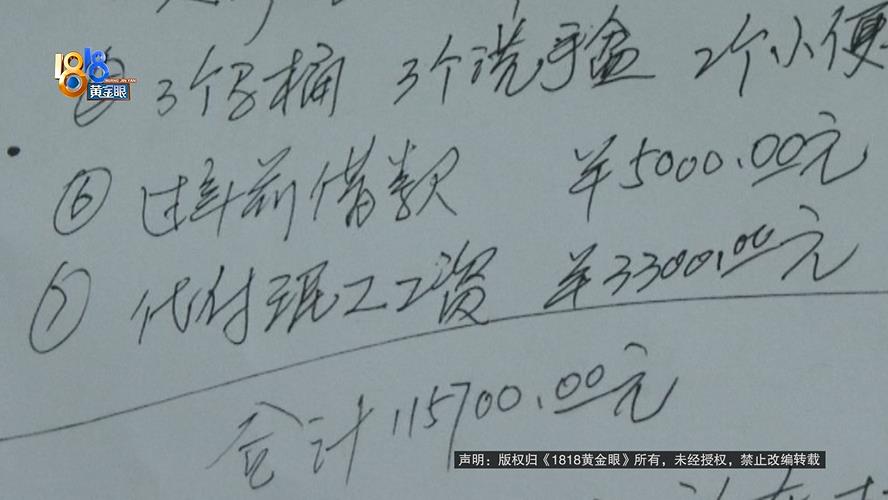 1818
黄金眼
3个马桶 3个洗手盆 2个小便
⑥ 过年前借款 ¥5000.00元
⑦ 代付琨工工资 ¥3300.00元
合计115700.00元
声明:版权归《1818黄金眼》所有,未经授权,禁止改编转载